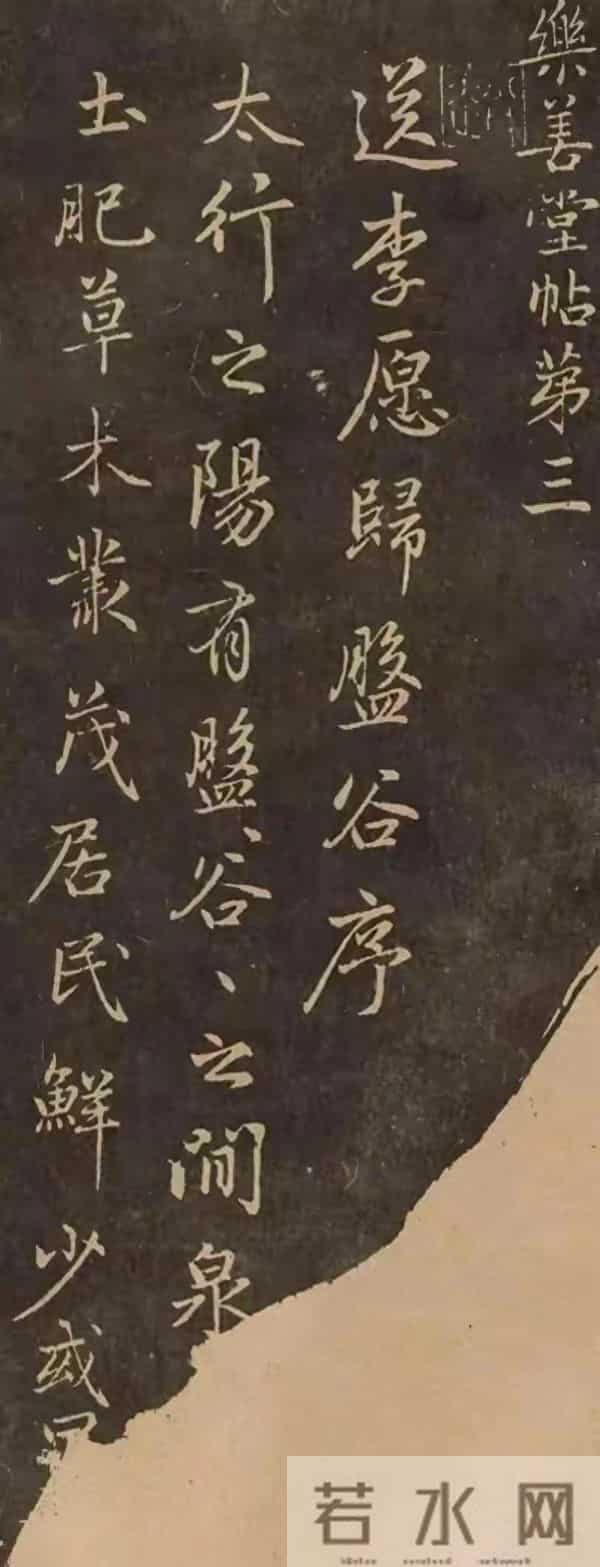 樂善堂帖第三
送李愿歸盤谷序
太行之陽有盤、谷、之間泉
土肥草木叢茂居民鮮少或曰
若水网